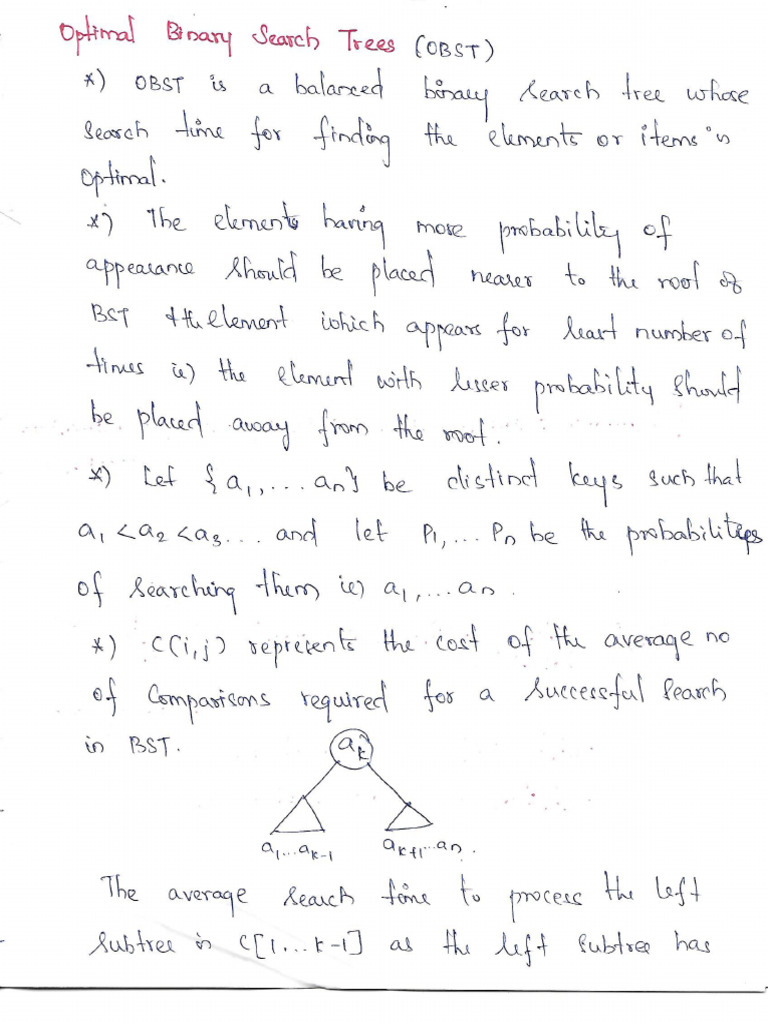 Optimal Binary Search Trees (OBST)
*) OBST is a balanced binary search tree whose
search time for finding the elements or items is
optimal.
*) The elements having more probability of
appearance should be placed nearer to the root of
BST & the element which appears for least number of
times ie) the element with lesser probability should
be placed away from the root.
*) Let {a1,... an} be distinct keys such that
a1 < a2 < a3... and let P1,... Pn be the probabilities
of searching them ie) a1,...an.
*) C(i,j) represents the cost of the average no
of comparisons required for a successful search
in BST.
ak
a1...ak-1 ak+1...an.
The average search time to process the left
subtree is C[1...k-1] as the left subtree has